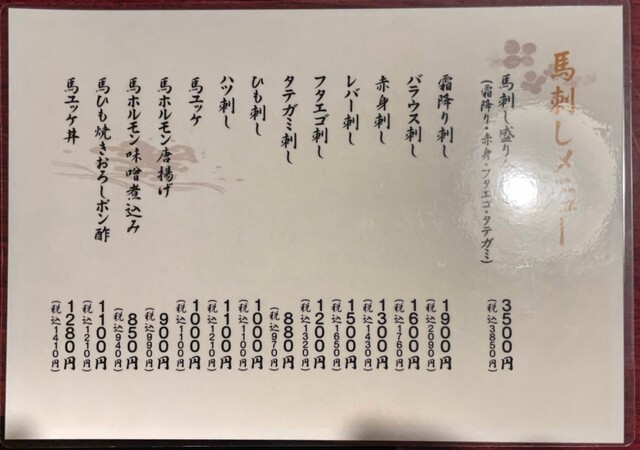 馬刺しメニュー
馬刺し盛り
(霜降り・赤身・フタエゴ・タテガミ)
3500円
(税込3850円)
霜降り刺し
1900円
(税込2090円)
バラウス刺し
1600円
(税込1760円)
赤身刺し
1300円
(税込1430円)
レバー刺し
1500円
(税込1650円)
フタエゴ刺し
1200円
(税込1320円)
タテガミ刺し
880円
(税込970円)
ひも刺し
1000円
(税込1100円)
ハツ刺し
1100円
(税込1210円)
馬ユッケ
1000円
(税込1100円)
馬ホルモン唐揚げ
900円
(税込990円)
馬ホルモン味噌煮込み
850円
(税込940円)
馬ひも焼きおろしポン酢
1100円
(税込1210円)
馬ユッケ丼
1280円
(税込1410円)